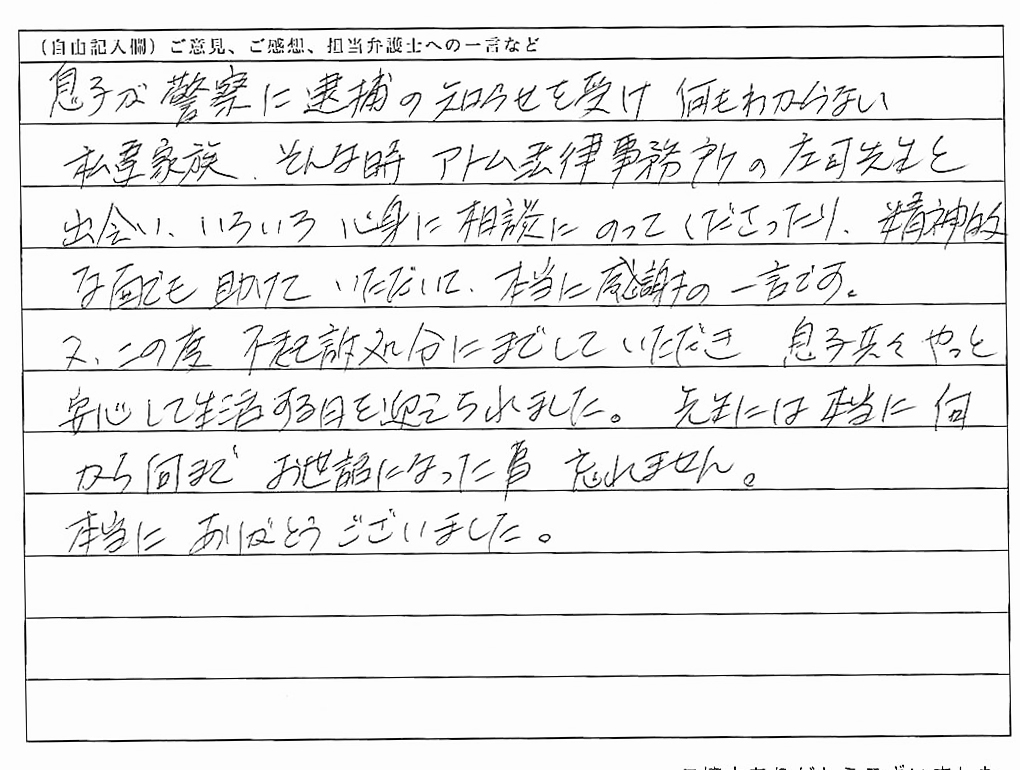 (自由記入欄)ご意見、ご感想、担当弁護士への一言など
息子が警察に逮捕の知らせを受け 何もわからない
私達家族、そんな時 アトム法律事務所の庄司先生と
出会い、いろいろ 心身に相談にのってくださったり、精神的
な面でも 助けて いただいて、本当に感謝の一言です。
又、この度 不起訴処分にまでして いただき 息子共々 やっと
安心して生活する日を迎えられました。 先生には本当に何
から何まで お世話になった事 忘れません。
本当に ありがとうございました。